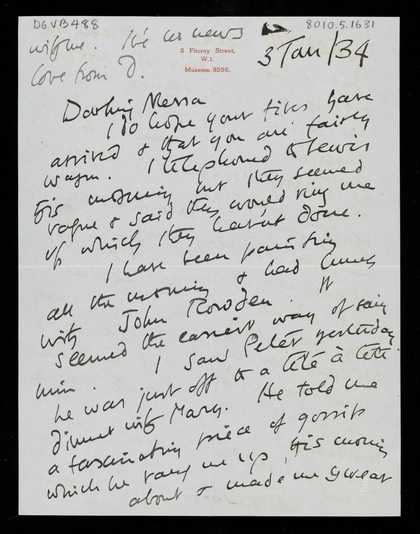 DGVB488
8010.5.1631
with me. It's no news
love from D.
8 Fitzroy Street,
W.1.
Museum 8256.
3 Jan/34
Darling Nessa
I do hope your fires have
arrived & that you are fairly
warm. I telephoned to Lewis
this morning but they seemed
vague & said they would ring me
up which they haven't done.
I have been painting
all the morning & had lunch
with John Rowden. It
seemed the easiest way of seeing
him. I saw Peter yesterday
he was just off to a tête à tête
dinner with Mary. He told me
a fascinating piece of gossip
which he rang me up this morning
about & made me swear